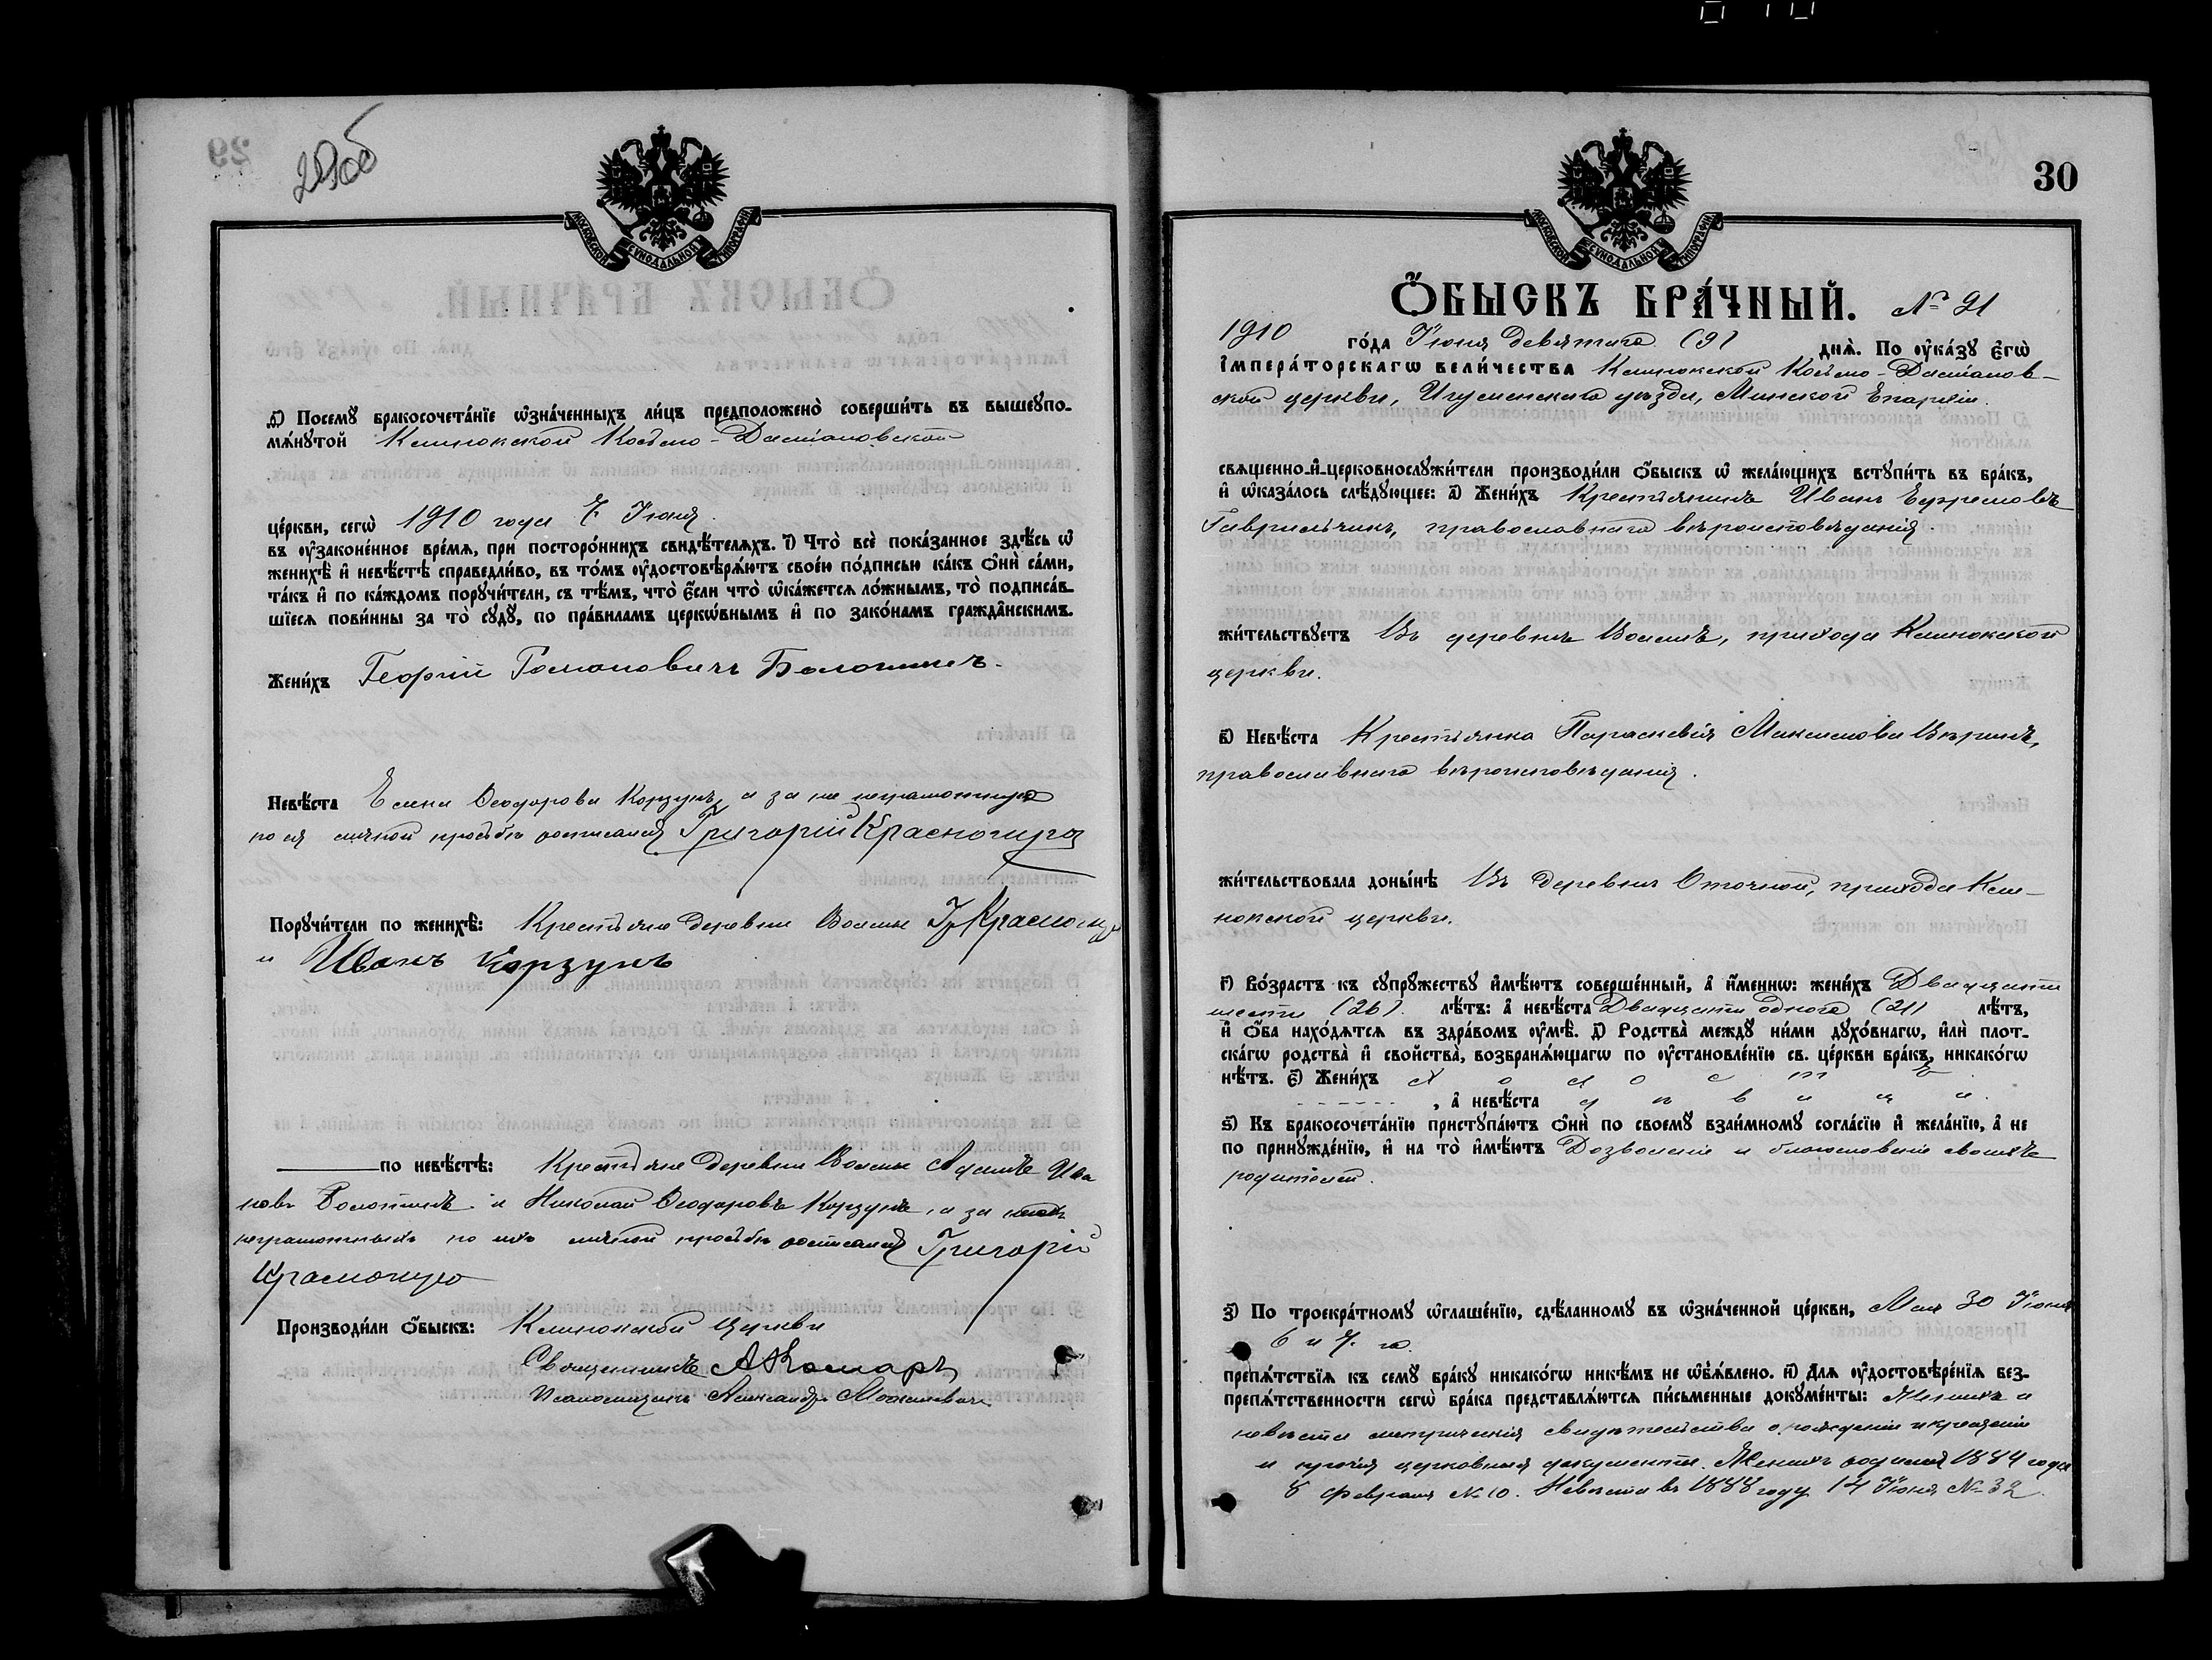 29об
МОСКОВСКОЙ СУНОДАЛЬНОЙ ТИПОГРАФІИ
д҃) Посемꙋ бракосочета́нїе ѡ҆зна́ченныхъ ли́цъ предположено̀ соверши́ть въ вышеꙋпо-
мѧ́нꙋтой Клинокской Косьмо-Даміановской
це́ркви, сегѡ̀ 1910 года 7 Іюня
въ ᲂу҆зако́ненное вре́мѧ, при посторо́ннихъ свидѣ́телѧхъ. і҃) Что̀ всѐ пока́занное здѣ́сь ѡ҆
женихѣ̀ и҆ невѣ́стѣ справедли́во, въ то́мъ ᲂу҆достовѣрѧ́ютъ свое́ю по́дписью ка́къ ѻ҆нѝ са́ми,
та́къ и҆ по ка́ждомъ порꙋчи́тели, съ тѣ́мъ, что̀ є҆́сли что̀ ѡ҆ка́жетсѧ ло́жнымъ, то̀ подписа́в-
шїесѧ пови́нны за то̀ сꙋдꙋ̀, по пра́виламъ церкѡ́внымъ и҆ по зако́намъ гражда́нскимъ.
Жени́хъ Георгій Романовичъ Болотникъ.
Невѣ́ста Елена Ѳеодорова Корзунъ, а за не неграмотную
по ея личной просьбѣ росписался Григорій
Порꙋчи́тели по женихѣ̀: Крестьяне деревни Волмы Гр
и Иванъ Корзунъ
по невѣ́стѣ: Крестьяне деревни Волмы Адамъ Ива
новъ Болотникъ и Николай Ѳеодоровъ Корзунъ, а за
неграмотныхъ по ихъ личной просьбѣ росписался Григорій
Производи́ли ѻ҆́быскъ: Клинокской церкви
Священникъ А Комаръ
Псаломщикъ Александръ
30
МОСКОВСКОЙ СУНОДАЛЬНОЙ ТИПОГРАФІИ
Ѻ҆БЫСКЪ БРА́ЧНЫЙ. № 21
1910 го́да Іюня девятаго (9) днѧ̀. По ᲂу҆ка́зꙋ є҆гѡ̀
І҆мпера́торскагѡ вели́чества Клинокской Косьмо-Даміанов-
ской церкви, Игуменскаго уѣзда, Минской Епархіи.
свѧщенно-и҆-церковнослꙋжи́тели производи́ли ѻ҆́быскъ ѡ҆ жела́ющихъ встꙋпи́ть въ бра́къ,
и҆ ѡ҆каза́лось слѣ́дꙋющее: а҃) Жени́хъ Крестьянинъ Иванъ Ефремовъ
Гаврильчикъ, православнаго вѣроисповѣданія.
жи́тельствꙋетъ Въ деревнѣ Волмѣ, прихода Клинокской
церкви.
в҃) Невѣ́ста Крестьянка Параскевія Максимова
православнаго вѣроисповѣданія.
жи́тельствовала доны́нѣ Въ деревнѣ Оточной, прихода Кли-
нокской церкви.
г҃) Во́зрастъ къ сꙋпрꙋ́жествꙋ и҆мѣ́ютъ соверше́нный, а҆ и҆́меннѡ: жени́хъ Двадцати
шести (26) лѣ́тъ: а҆ невѣ́ста Двадцати одного (21) лѣ́тъ,
и҆ ѻ҆́ба нахо́дѧтсѧ въ здра́вомъ ᲂу҆мѣ̀. д҃) Родства̀ междꙋ ни́ми дꙋхо́внагѡ, и҆лѝ плот-
ска́гѡ родства̀ и҆ свойства̀, возбранѧ́ющагѡ по ᲂу҆становле́нїю св. це́ркви бра́къ, никако́гѡ
нѣ́тъ. є҃) Жени́хъ х о л о с т ъ
, а҆ невѣ́ста д ѣ в и ц а.
ѕ҃) Къ бракосочета́нїю пристꙋпа́ютъ ѻ҆нѝ по своемꙋ̀ взаи́мномꙋ согла́сїю и҆ жела́нїю, а҆ не
по принꙋжде́нїю, и҆ на то̀ и҆мѣ́ютъ Дозволеніе и благословеніе своихъ
родителей.
з҃) По троекра́тномꙋ ѡ҆глаше́нїю, сдѣ́ланномꙋ въ ѡ҆зна́ченной це́ркви, Мая 30 Іюня
6 и 7. го
препѧ́тствїѧ къ семꙋ̀ бра́кꙋ никако́гѡ никѣ́мъ не ѡ҆б̾ѧ́влено. и҃) Длѧ ᲂу҆достовѣре́нїѧ без-
препѧ́тственности сегѡ̀ бра́ка представлѧ́ютсѧ пи́сьменные докꙋме́нты: Жениха и
невѣсты метрическія свидѣтельства о рожденіи и крещеніи
и прочія церковныя документы. Женихъ родился 1884 года
8 февраля № 10. Невѣста въ 1888 году 14 Іюня № 32.